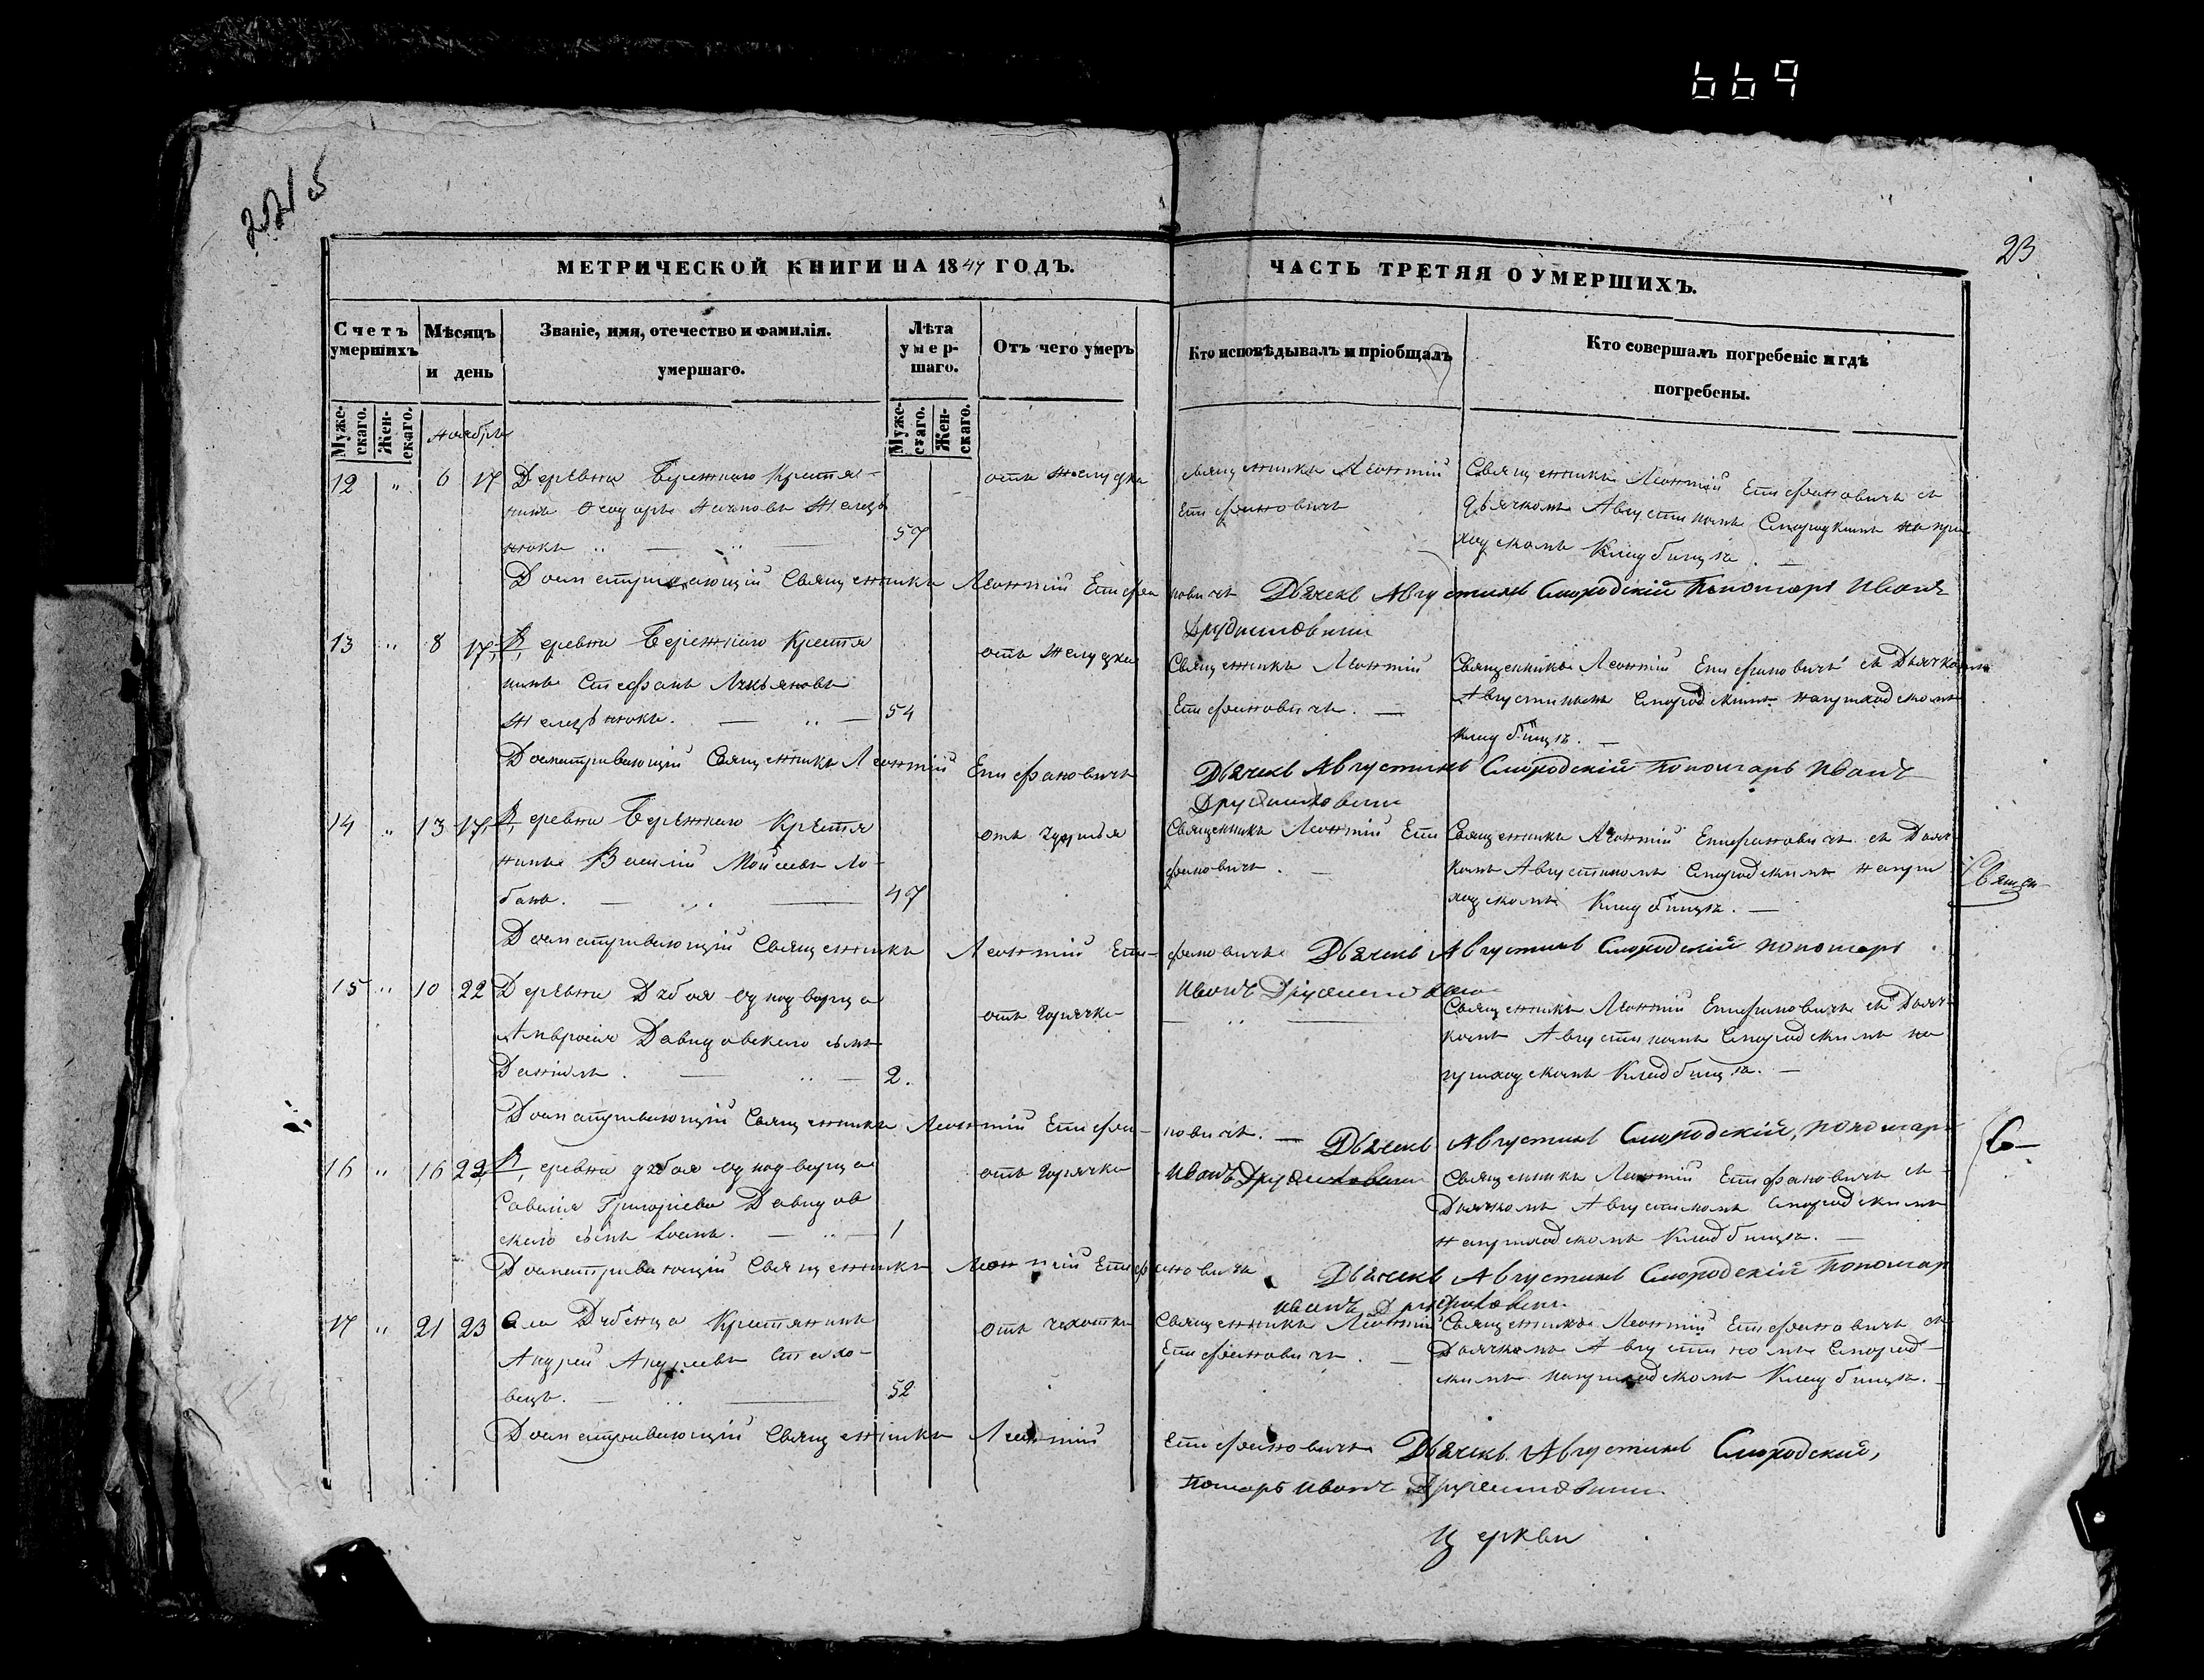 669
23
МЕТРИЧЕСКОЙ КНИГИ НА 1847 ГОДЪ.
ЧАСТЬ ТРЕТЯЯ О УМЕРШИХЪ.
Счетъ умершихъ
Мѣсяцъ и день
Званіе, имя, отечество и фамилія. умершаго.
Лѣта умер-шаго.
Отъ чего умеръ
Кто исповѣдывалъ и пріобщалъ
Кто совершалъ погребеніе и гдѣ погребены.
Муже-скаго.
Жен-скаго.
Ноябрь
Муже-скаго.
Жен-скаго.
12 " 6 17 Деревни Бережнаго Крестья-
нинъ Ѳеодоръ
нюкъ 57
отъ желудка
Священникъ Леонтій
Епифановичъ
Священникъ Леонтій Епифановичъ съ
дьячкомъ Августиномъ Смородскимъ на при
ходскомъ Кладбищѣ.
Досматривающій Священникъ Леонтій Епифа
новичъ Дьячекъ Августинъ Смородскій Пономарь Иванъ
13 " 8 17 Деревни Бережнаго Крестья
нинъ Стефанъ Лукьяновъ
Желѣзнюкъ. 54
отъ желудка
Священникъ Леонтій
Епифановичъ.
Священникъ Леонтій Епифановичъ съ Дьячкомъ
Августиномъ Смородскимъ на приходскомъ
кладбищѣ.
Досматривающій Священникъ Леонтій Епифановичъ
Дьячекъ Августинъ Смородскій Пономарь Иванъ
14 " 13 17 Деревни Бережнаго Крестья
нинъ Василій Мойсеевъ Ло-
банъ. 47
отъ
Священникъ Леонтій Епи
фановичъ.
Священникъ Леонтій Епифановичъ съ Дьяч
комъ Августиномъ Смородскимъ на при
ходскомъ Кладбищѣ.
Священ
Досматривающій Священникъ Леонтій Епи-
фановичъ Дьячекъ Августинъ Смородскій пономарь
Иванъ
15 " 10 22 Деревни Дубоя однодворца
Амвросія Давидовскаго сынъ
Даніилъ. 2.
отъ Горячки
Священникъ Леонтій Епифановичъ съ Дьяч-
комъ Августиномъ Смородскимъ на
приходскомъ Кладбищѣ.
Досматривающій Священникъ Леонтій Епифа-
новичъ. Дьячекъ Августинъ Смородскій, пономарь
Иванъ
С
16 " 16 22 Деревни дубоя однодворца
Савелія Григоріева Давидов
скаго сынъ Іоанъ. 1
отъ Горячки
Священникъ Леонтій Епифановичъ съ
Дьячкомъ Августиномъ Смородскимъ
на приходскомъ Кладбищѣ.
Досматривающій Священникъ Леонтій Епиф
ановичъ Дьячекъ Августинъ Смородскій Пономарь
Иванъ
17 " 21 23 Села Дубенца Крестянинъ
Андрей Андреевъ
вецъ. 52
отъ чахотки
Священникъ Леонтій
Епифановичъ.
Священникъ Леонтій Епифановичъ съ
Дьячкомъ Августиномъ Смород-
скимъ на приходскомъ Кладбищѣ.
Досматривающій Священникъ Леонтій
Епифановичъ Дьячекъ Августинъ Смородскій,
Иванъ
Церкви